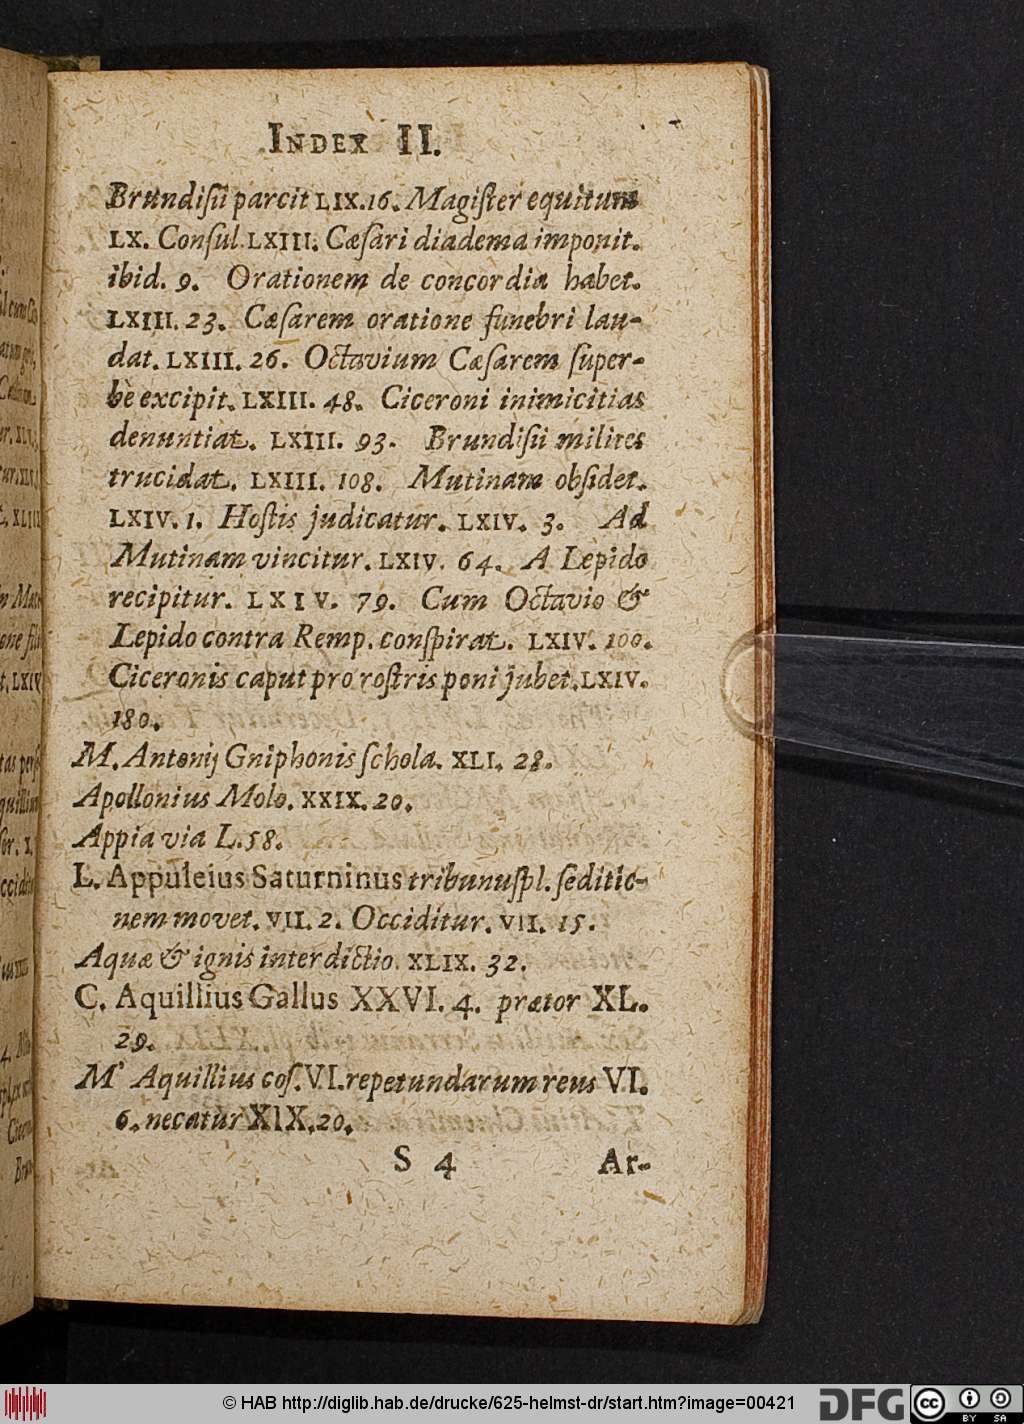 INDEX II.
Brundiſii parcit LIX.16. Magiſter equitum
LX. Conſul LXIII. Cæſari diadema imponit.
ibid. 9. Orationem de concordia habet.
LXIII. 23. Cæſarem oratione funebri lau-
dat. LXIII. 26. Octavium Cæſarem ſuper-
bè excipit. LXIII. 48. Ciceroni inimicitias
denuntiat. LXIII. 93. Brundiſii milites
trucidat. LXIII. 108. Mutinam obſidet.
LXIV. 1. Hoſtis judicatur. LXIV. 3. Ad
Mutinam vincitur. LXIV. 64. A Lepido
recipitur. LXIV. 79. Cum Octavio &
Lepido contra Remp. conſpirat. LXIV. 100.
Ciceronis caput pro roſtris poni jubet. LXIV.
180.
M. Antonij Gniphonis ſchola. XLI. 28.
Apollonius Molo. XXIX. 20.
Appia via L. 58.
L. Appuleius Saturninus tribunuſpl. ſeditio-
nem movet. VII. 2. Occiditur. VII. 15.
Aquæ & ignis interdictio. XLIX. 32.
C. Aquillius Gallus XXVI. 4. prætor XL.
29.
M' Aquillius coſ. VI. repetundarum reus VI.
6. necatur XIX. 20.
S 4 Ar-
© HAB http://diglib.hab.de/drucke/625-helmst-dr/start.htm?image=00421
DFG
cc
BY SA